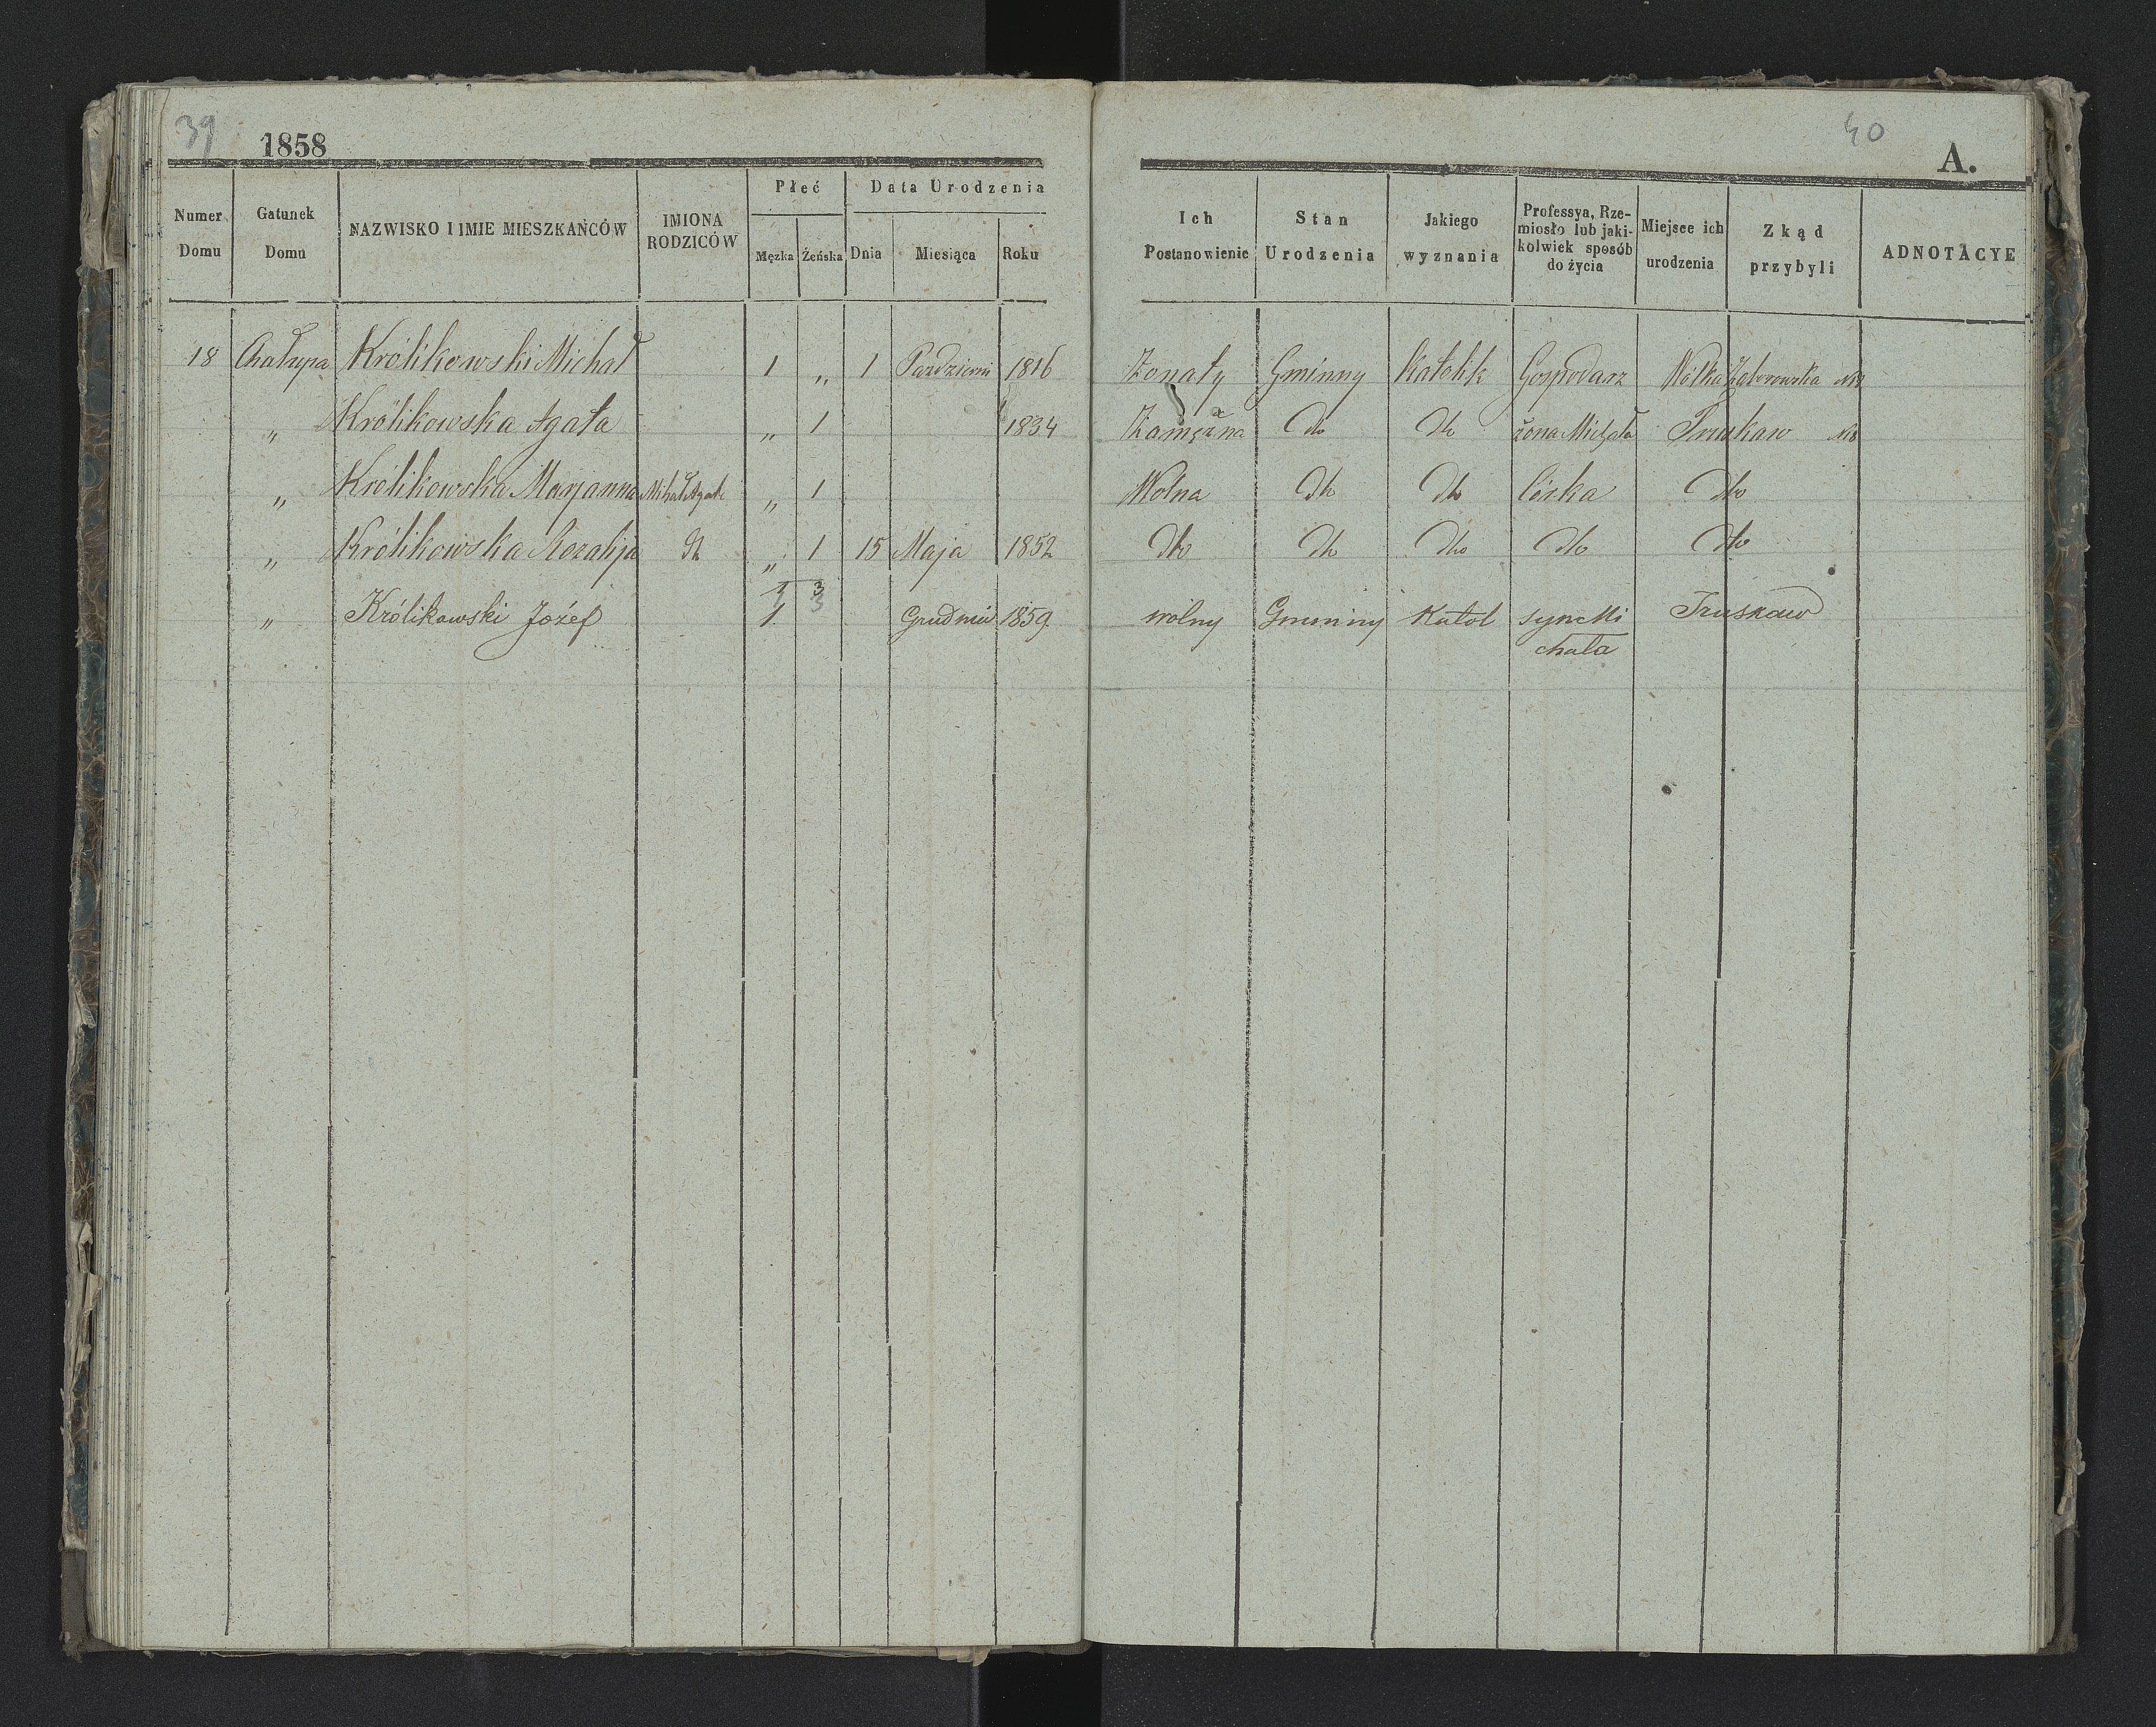 39 1858 40 A.
Numer Domu Gatunek Domu NAZWISKO I IMIE MIESZKAŃCÓW IMIONA RODZICÓW Płeć Męzka Żeńska Data Urodzenia Dnia Miesiąca Roku Ich Postanowienie Stan Urodzenia Jakiego wyznania Professya, Rzemiosło lub jakikolwiek sposób do życia Miejsce ich urodzenia Zkąd przybyli ADNOTACYE
18 Chałupa Królikowski Michał 1 „ 1 Pazdziern 1816 Żonaty Gminny Katolik Gospodarz Wólka Zaborowska
„ Królikowska Agata „ 1 1834 Zamężna Dto Dto żona Michała Truskaw
„ Królikowska Marjanna Michał Agata „ 1 Wolna Dto Dto Córka Dto
„ Królikowska Rozalija Dt „ 1 15 Maja 1852 Dto Dto Dto Dto Dto
1 3
3
„ Królikowski Józef 1 Grudnia 1859 wolny Gminny Katol syn Mi
chała Truskaw